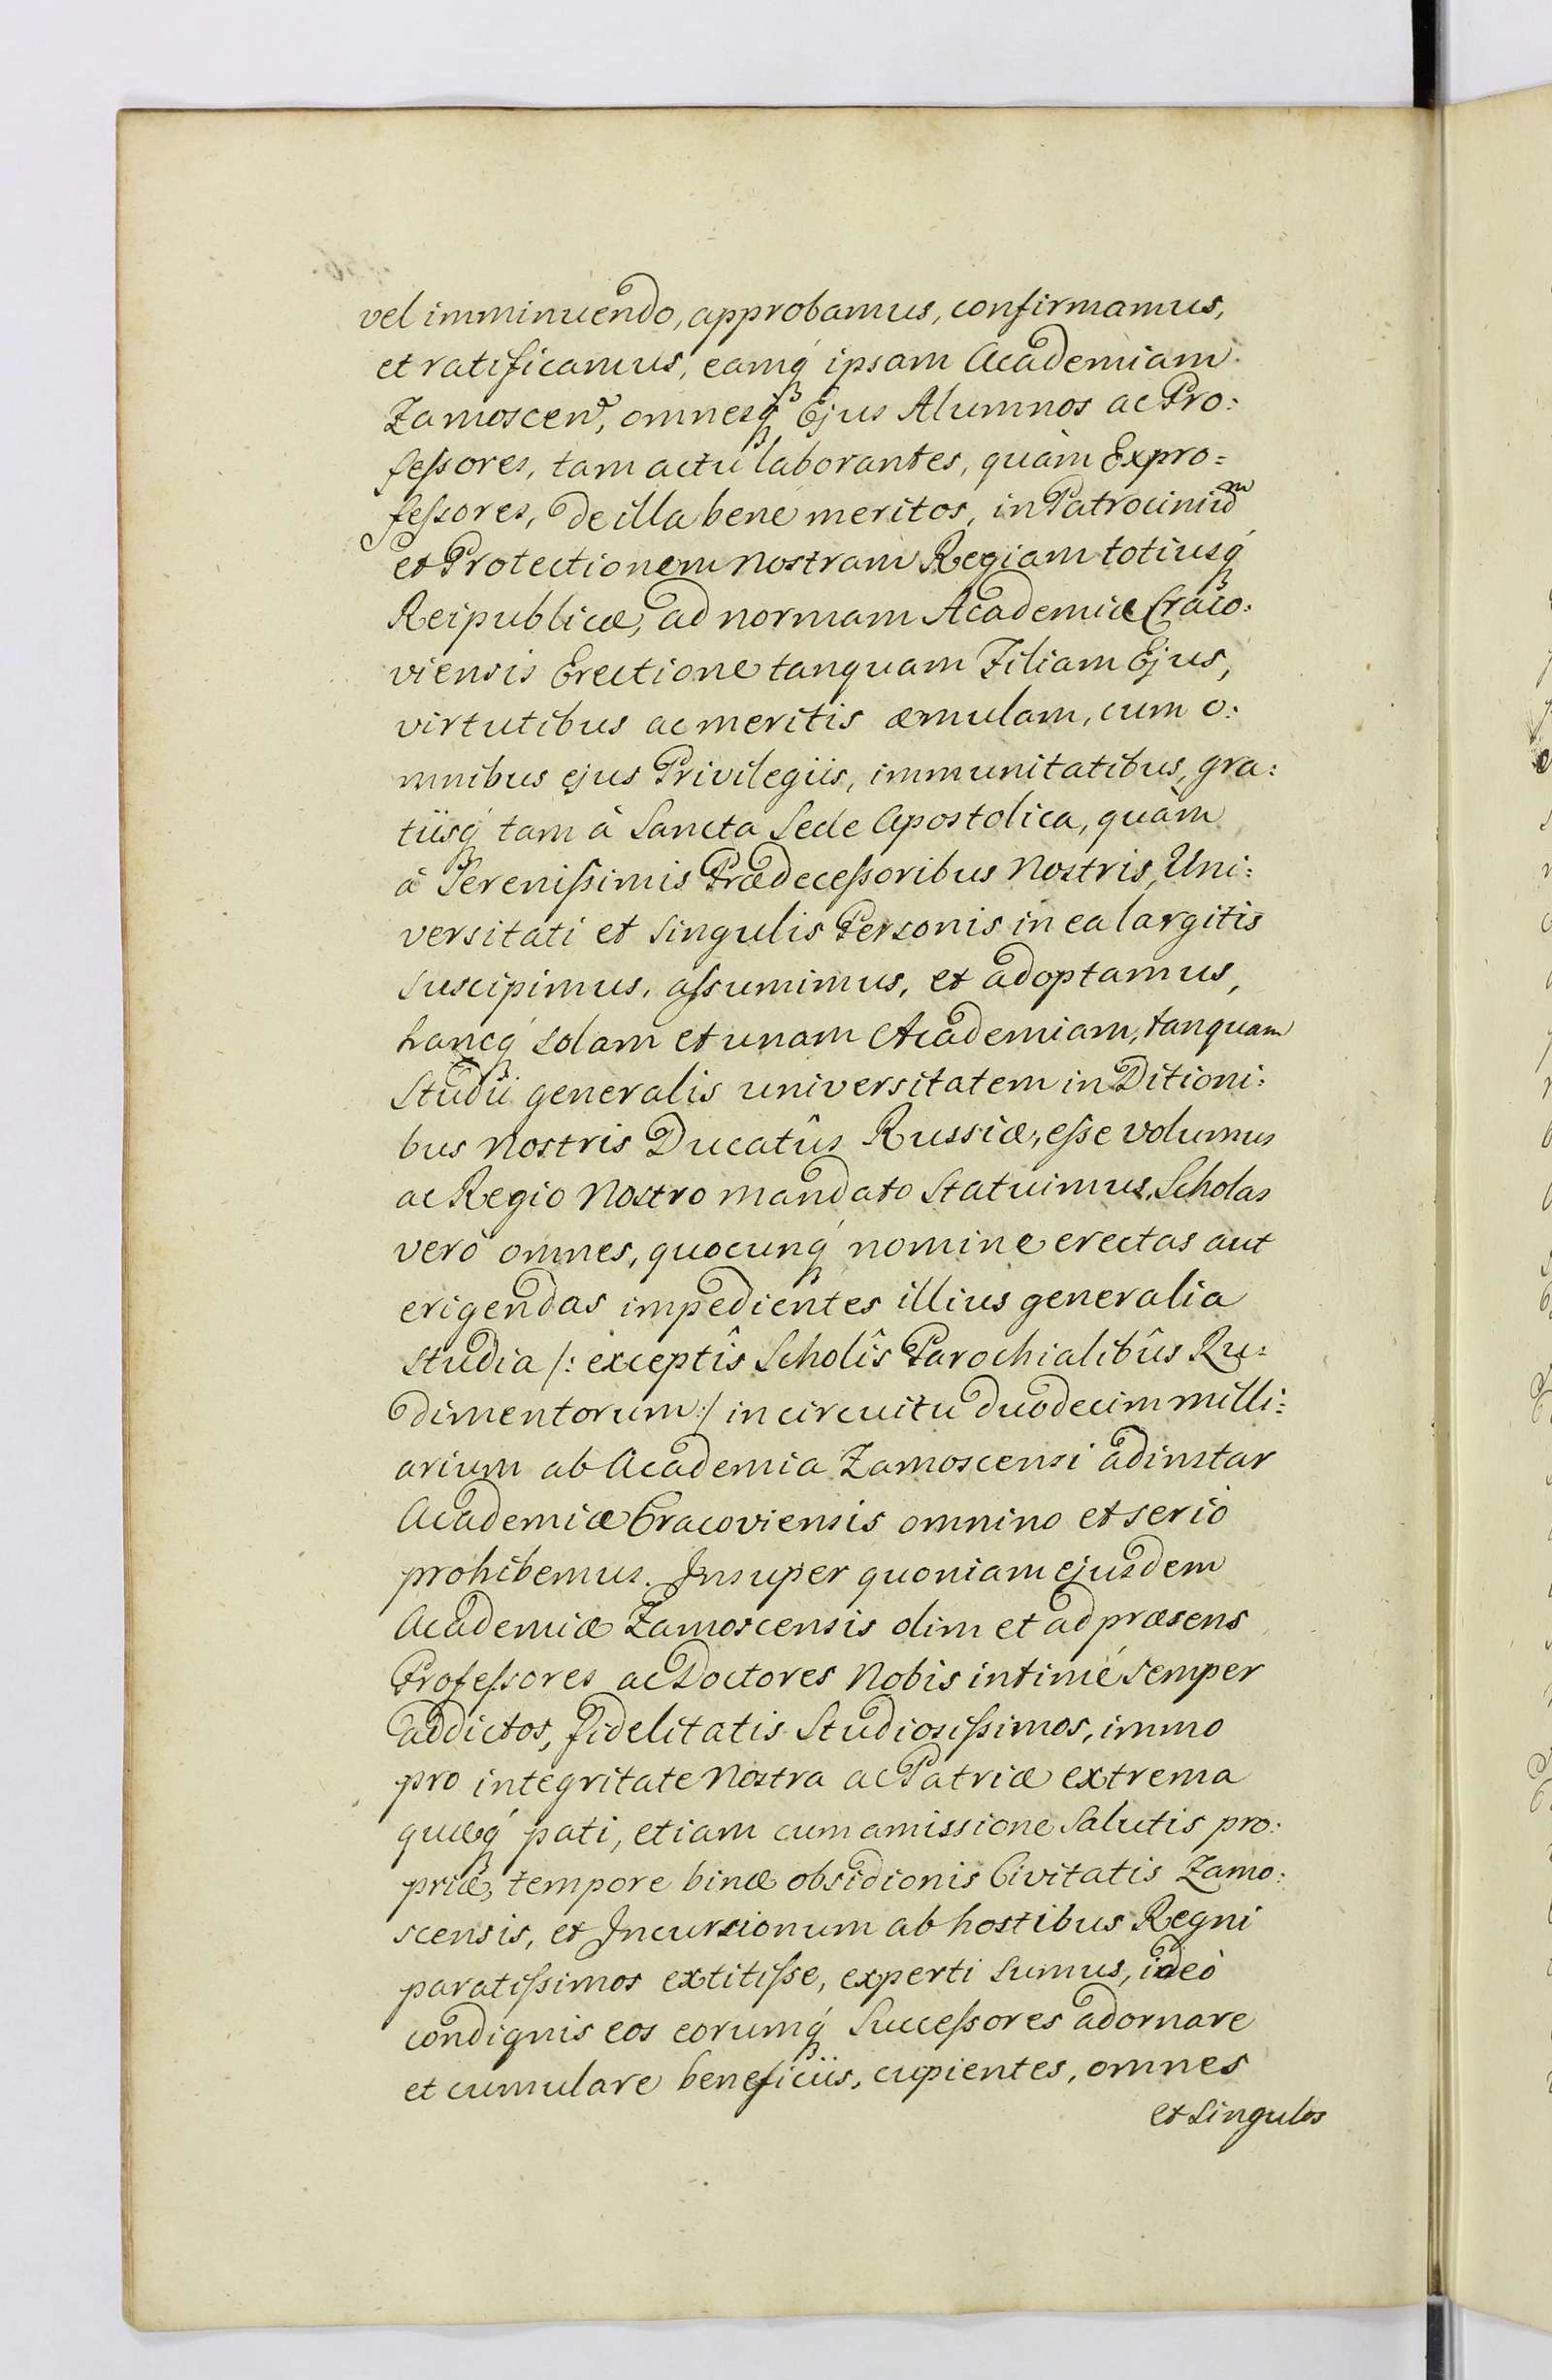 vel imminuendo, approbamus, confirmamus,
et ratificamus, eamq́ ipsam Academiam
Zamoscen̄, omnesq́ Ejus Alumnos ac Pro:
feſsores, tam actu laborantes, quàm Expro=
feſsores, de illa bene meritos, in Patrociniũ
et Protectionem Nostram Regiam totiusq́
Reipublicæ, ad normam Academiæ Craco:
viensis Erectione tanquam Filiam Ejus,
virtutibus ac meritis æmulam, cum o:
mnibus ejus Privilegiis, immunitatibus, gra:
tiisq́ tam à Sancta Sede Apostolica, quàm
à Sereniſsimis Prædeceſsoribus Nostris, Uni:
versitati et singulis Personis in ea largitis
suscipimus, aſsumimus, et adoptamus,
hancq́ solam et unam Academiam, tanquam
Studii generalis universitatem in Ditioni:
bus Nostris Ducatûs Russiæ, eſse volumus
ac Regio Nostro mandato statuimus. Scholas
verò omnes, quocunq́ nomine erectas aut
erigendas impedientes illius generalia
studia /: exceptîs Scholîs Parochialibûs Ru:
dimentorum :/ in circuitu duodecim milli:
arium ab Academia Zamoscensi adinstar
Academiæ Cracoviensis omnino et seriò
prohibemus. Insuper quoniam ejusdem
Academiæ Zamoscensis olim et ad præsens
Profeſsores ac Doctores Nobis intimé semper
addictos, fidelitatis Studiosiſsimos, immo
pro integritate Nostra ac Patriæ extrema
quæq́ pati, etiam cum amissione Salutis pro:
priæ, tempore binæ obsidionis Civitatis Zamo:
scensis, et Incursionum ab hostibus Regni
paratiſsimos extitiſse, experti sumus, ideò
condignis eos eorumq́ Succeſsores adornare
et cumulare beneficiis, cupientes, omnes
et singulos